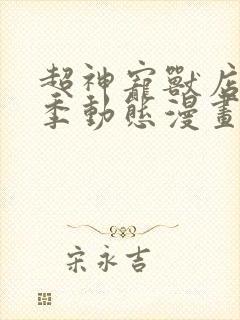 超神寵獸店
季動態漫畫
宋永吉